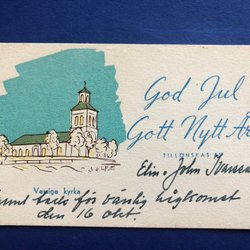 God Jul
Gott Nytt År
TILLÖNSKAS AV
Elin o John
Versige kyrka
tack för vänlig hågkomst
den 16 okt.